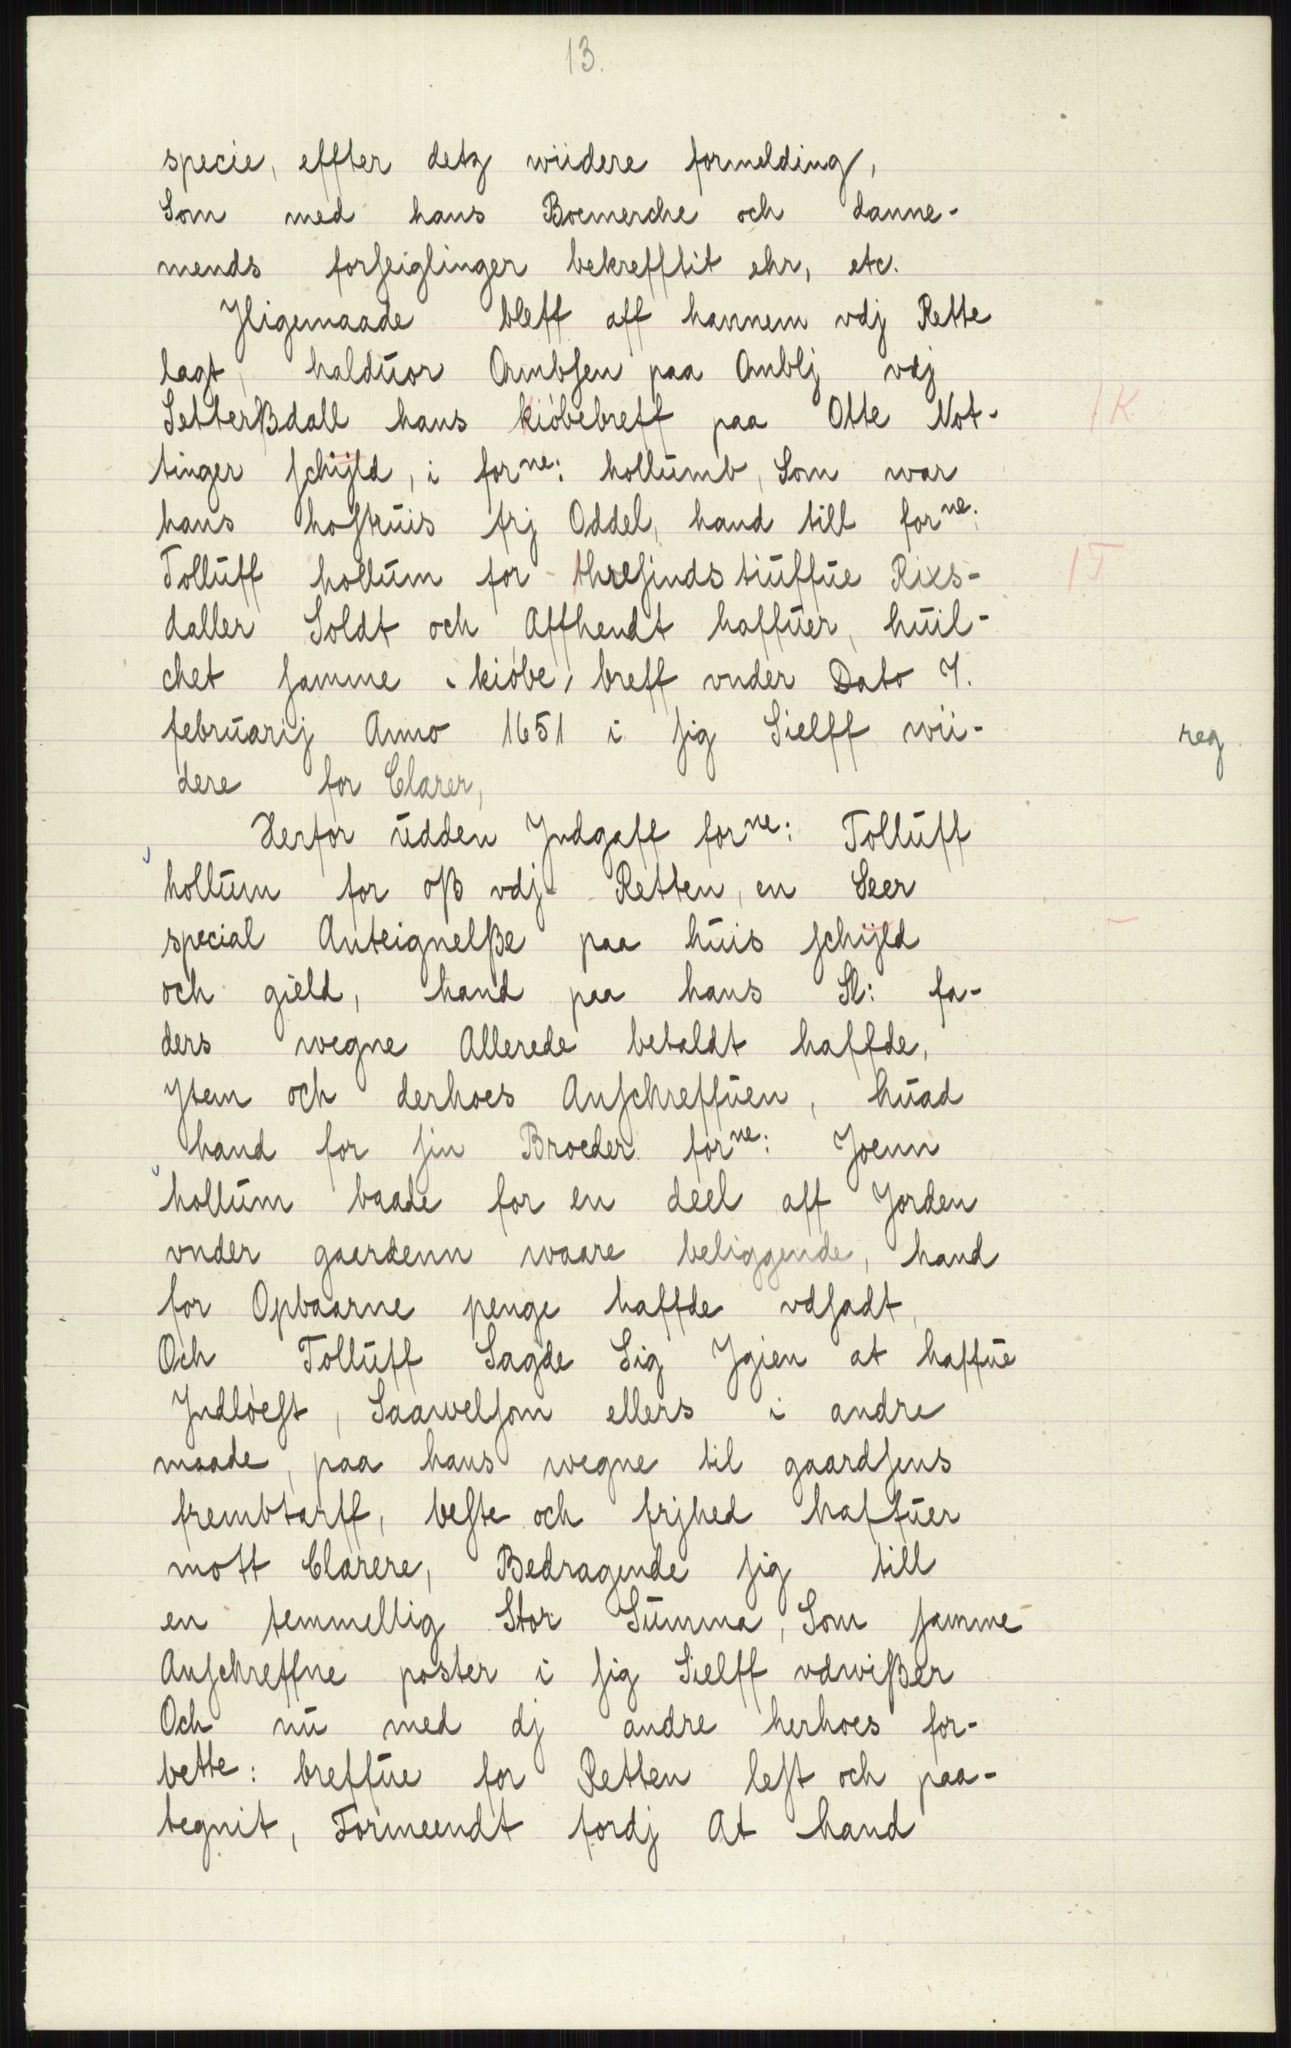 13.
specie, effter detz wiidere formelding,
Som med hans Boemerche och danne-
mends forseiglinger bekrefftit ehr, etc.
Jligemaade bleff aff hannem vdj Rette
lagt, halduor Ambsen paa Amblj vdj
Setterßdall hans kiöbebreff paa Otte Not-
1K
tinger schijld, i forne: hollumb, Som war
hans hostruis frj Oddel, hand till forne:
Tolluff hollum for thresinds tiuffue Rixs-
1T
daller Soldt och Affhendt haffuer, huil-
chet samme kiöbe, breff vnder Dato 7.
februarij Anno 1651 i sig Sielff wii-
reg.
dere for Clarer,
Herfor udden Jndgaff forne: Tolluff
hollum for oß vdj Retten, en Seer
special Anteignelße paa huis schijld
och gield, hand paa hans Sl: fa-
ders wegne Allerede betaldt haffde,
Jtem och derhoes Anschreffuen, huad
hand for sin Broeder forne: Joenn
hollum baade for en deel aff Jorden
vnder gaardenn waare beliggende, hand
for Opbaarne penge haffde vdsadt,
Och Tolluff Sagde Sig Jgien at haffue
Jndlöest, Saawelsom ellers i andre
maade, paa hans wegne til gaardsens
frembtarff, beste och frjhed haffuer
mott Clarere, Bedragende sig till
en temmellig Stor Summa, Som samme
Anschreffne poster i sig Sielff vdwißer
Och nu med dj andre herhoes for-
bette: breffue for Retten lest och paa-
tegnit, Formeendt fordj At hand